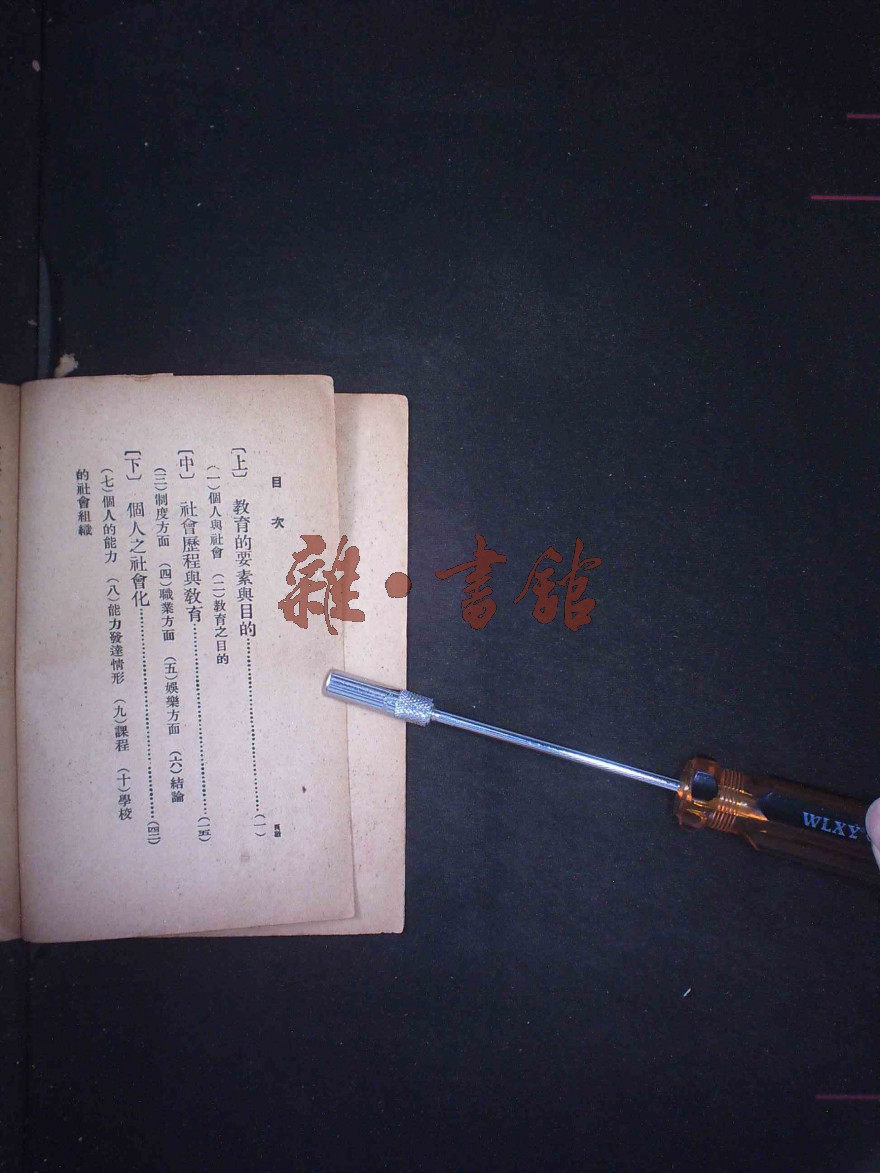 目 次
頁數
〔上〕 教育的要素與目的……………(一)
(一)個人與社會 (二)教育之目的
〔中〕 社會歷程與教育……………(一五)
(三)制度方面 (四)職業方面 (五)娛樂方面 (六)結論
〔下〕 個人之社會化……………(四二)
(七)個人的能力 (八)能力發達情形 (九)課程 (十)學校
的社會組織
雜·書館
WLXY